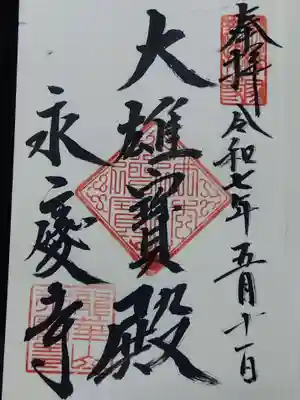 奉拝
令和七年五月十一日
大雄寳殿
永慶寺